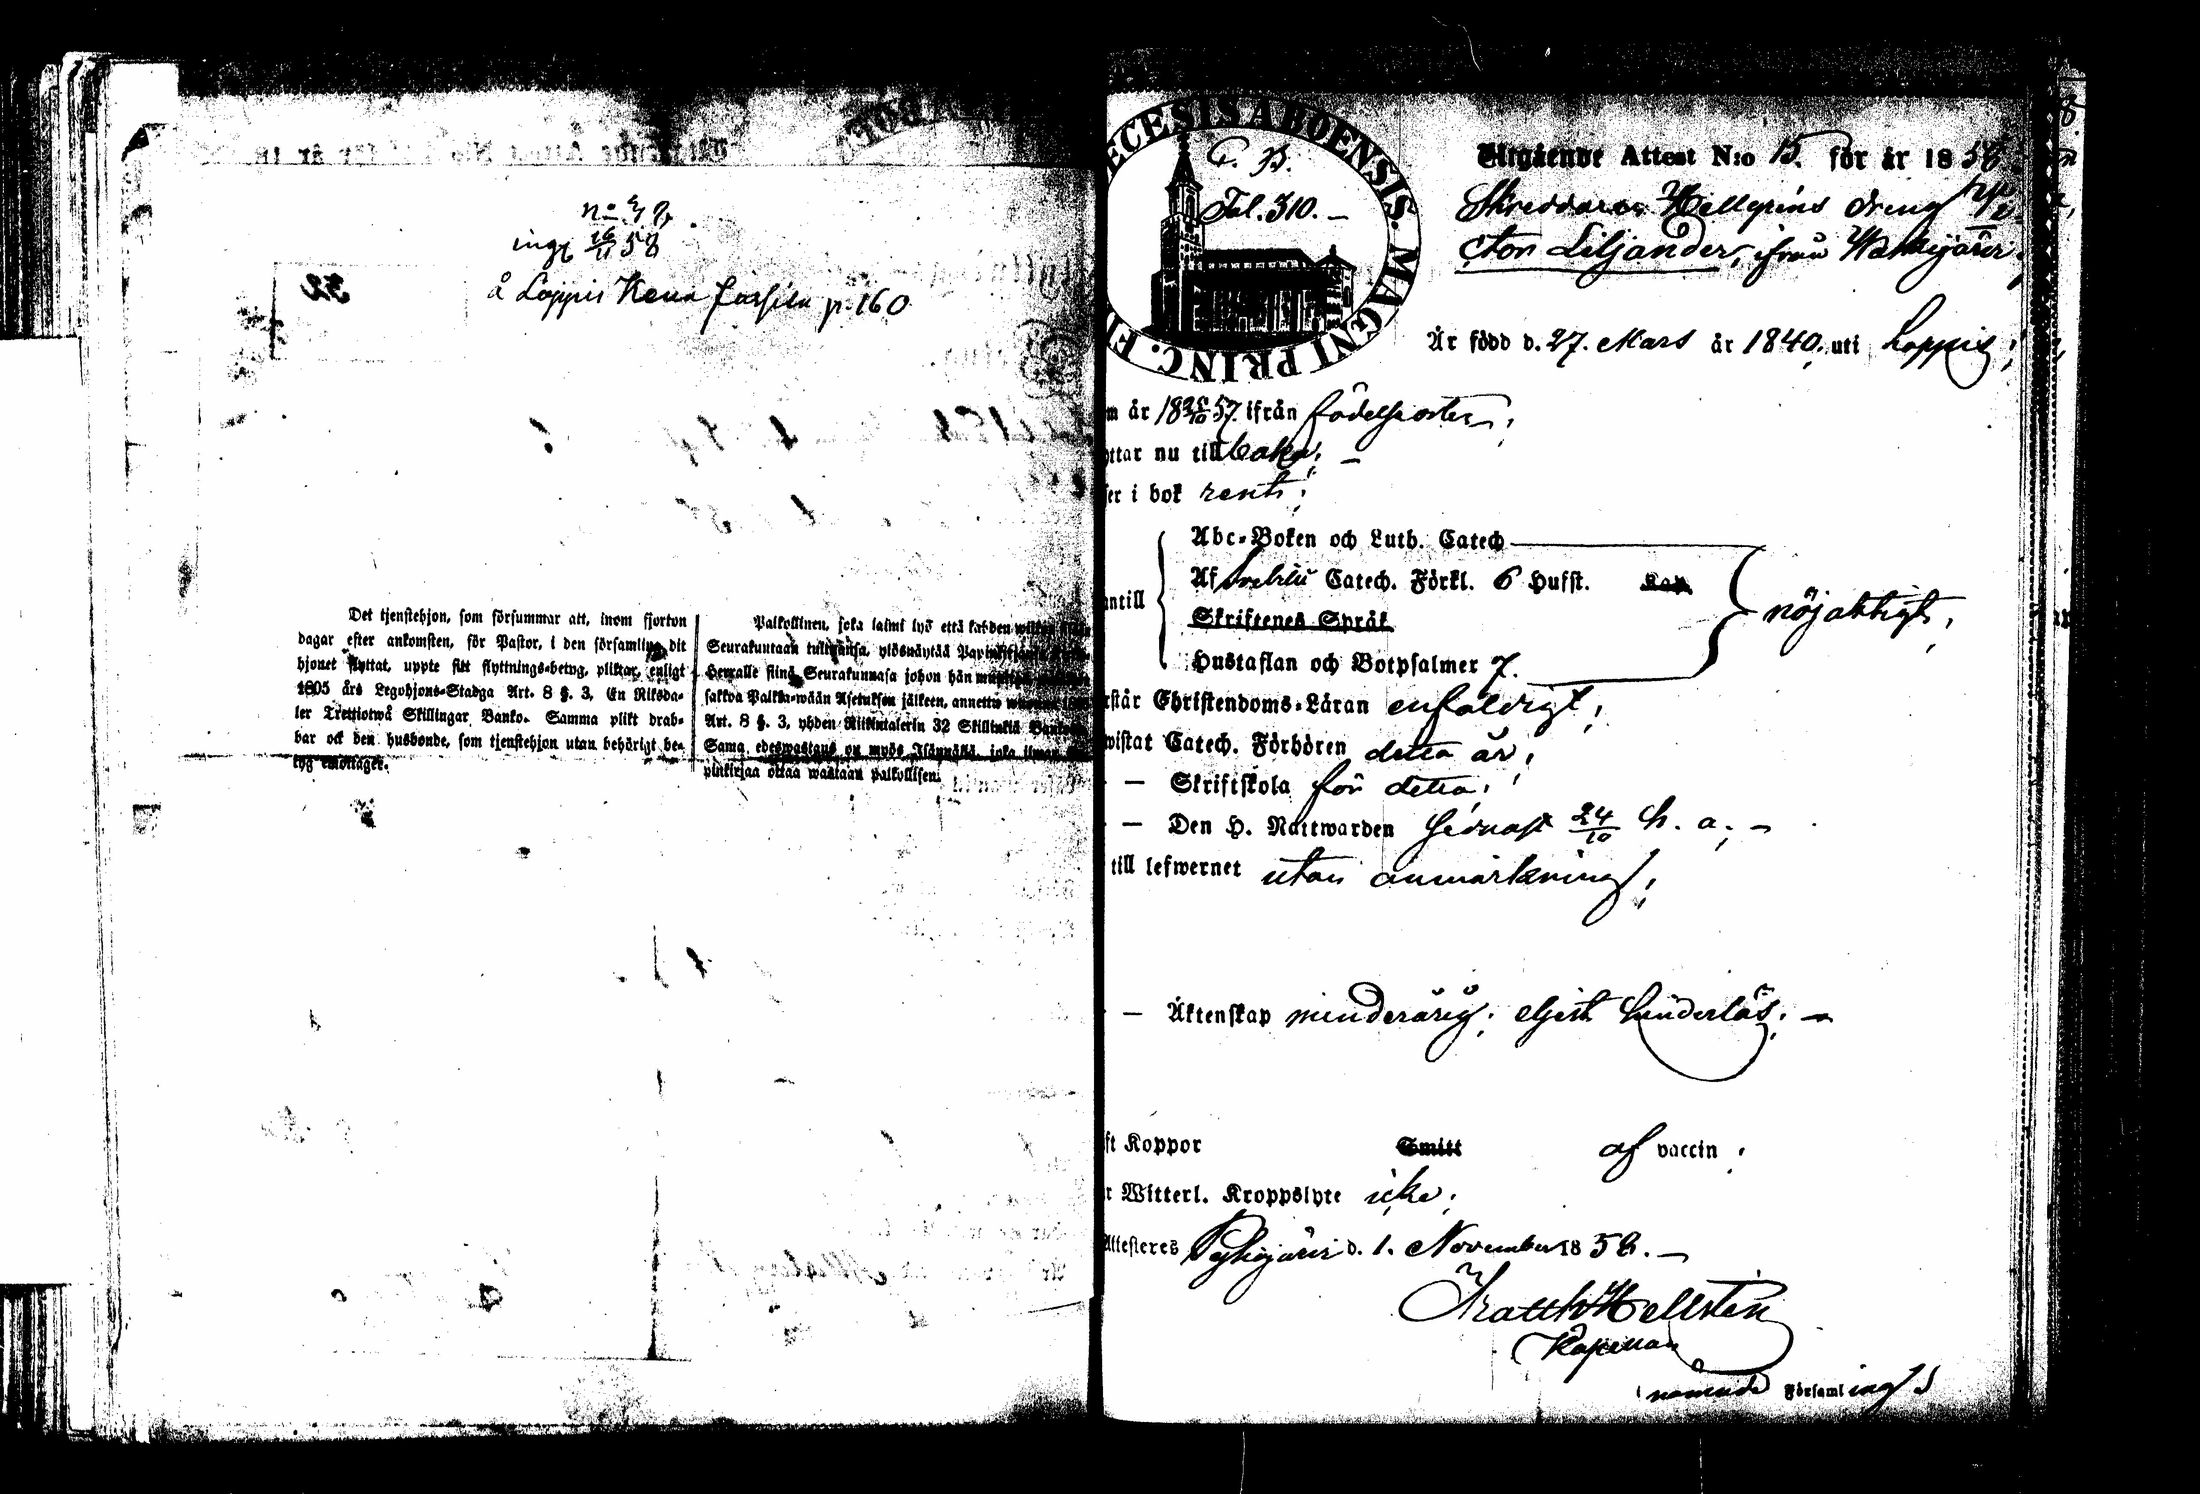 n:o 32.
ing. 16/11 58
å Loppis Kena Forsila p. 160
32
Det tjenstehjon, som försummar att, inom fjorton
dagar efter ankomsten, för Pastor, i den församling dit
hjonet flyttat, uppte sitt flyttnings-betyg, pliktar, enligt
1805 års Legohjons-Stadga Art. 8 §. 3, En Riksda-
ler Trettiotwå Skillingar Banko. Samma plikt drab-
bar ock den husbonde, som tjenstehjon utan behörigt be-
tyg emottager.
Palkollinen, joka laimi lyö että kahden
Seurakuntaan tultuansa, ylösnäytää
Herralle siinä Seurakunnasa johon hän
sakkoa Palkka-wään Asetuksen jälkeen, annettu
Art. 8 §. 3, yhden Riikintalerin 32 Skillinkiä
Sama edeswastaus on myös Isännällä, joka ilman
pinkirjaa ottaa wastaan palkollisen.
ECESIS ABOENSIS. MAGNI PRINC. FI
P. B.
Fol. 310. –
Utgående Attest N:o 15. för år 1858
Skreddaren Hellgrens dreng
ctor Liljander, ifrån
Är född d. 27. Mars år 1840. uti Loppis;
m år 18 25/10 57. ifrån födelseorten;
ttar nu tillbaka; –
er i bok rent;
antill
Abc-Boken och Luth. Catech
Af Svebilii Catech. Förkl. 6 Hufst. Kap.
Skriftenes Språk
Hustaflan och Botpsalmer 7.
nöjaktigt;
rstår Christendoms-Läran enfaldigt;
wistat Catech. Förhören detta år;
– Skriftskola för detta;
– Den H. Nattwarden sednast 24/10 h. a; –
till lefwernet utan anmärkning;
– Äktenskap minderårig; eljest hinderlös; –
ft Koppor Smitt af vaccin;
r Witterl. Kroppslyte icke;
Attesteres Pyhäjärvi d. 1. November 1858. –
Hellstén
Kapellan
nämnde Församling